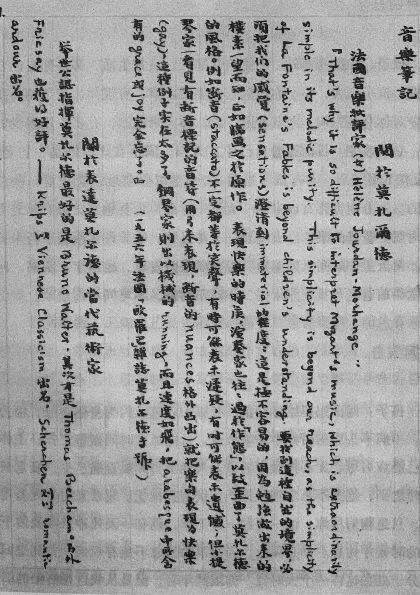 音樂筆記
關於莫扎爾德
法國音樂批評家(女) Hélène Jourdan-Morhange:
"That's why it is so difficult to interpret Mozart's music, which is extraordinarily
simple in its melodic purity. This simplicity is beyond our reach, as the simplicity
of La Fontaine's Fables is beyond children's understanding. 要找到這種自然的境界，必
須把我們的感覺(sensations)澄清到immaterial的程度：這是極不容易的，因為勉強做出來的
樸素一望而知，正如臨畫之於原作。表現快樂的時候，演奏家也往往過於"作態"，以致歪曲了莫扎爾德
的風格。例如斷音(staccato)不一定都等於笑聲，有時可能表示遲疑，有時可能表示遺憾；但小提
琴家一看見有斷音標記的音符(用弓來表現，斷音的nuances格外凸出)就把樂句表現為快樂
(gay)，這種例子實在太多了。鋼琴家則出以機械的running，而且速度如飛，把arabesque中所含
有的grace或joy完全忘了。」 (一九五六年法國《歐羅巴》雜誌莫扎爾德專號)
關於表達莫扎爾德的當代藝術家
舉世公認指揮莫扎爾德最好的是Bruno Walter，其次才是Thomas Beecham；另外
Fricsay也獲得好評。—— Krips以Viennese Classicism出名，Scherchen則以romantic
ardour出名。